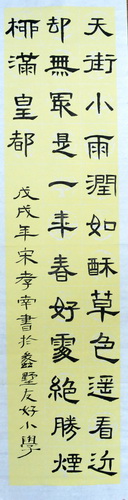 天街小雨潤如酥草色遥看近
却無最是一年春好處絶勝煙
柳滿皇都
戊戌年宋孝宰書於蠡墅友好小學